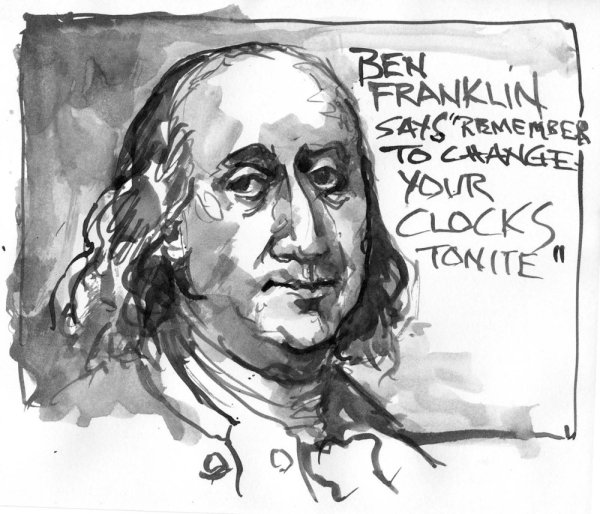 BEN
FRANKLIN
SAYS "REMEMBER
TO CHANGE
YOUR
CLOCKS
TONITE"